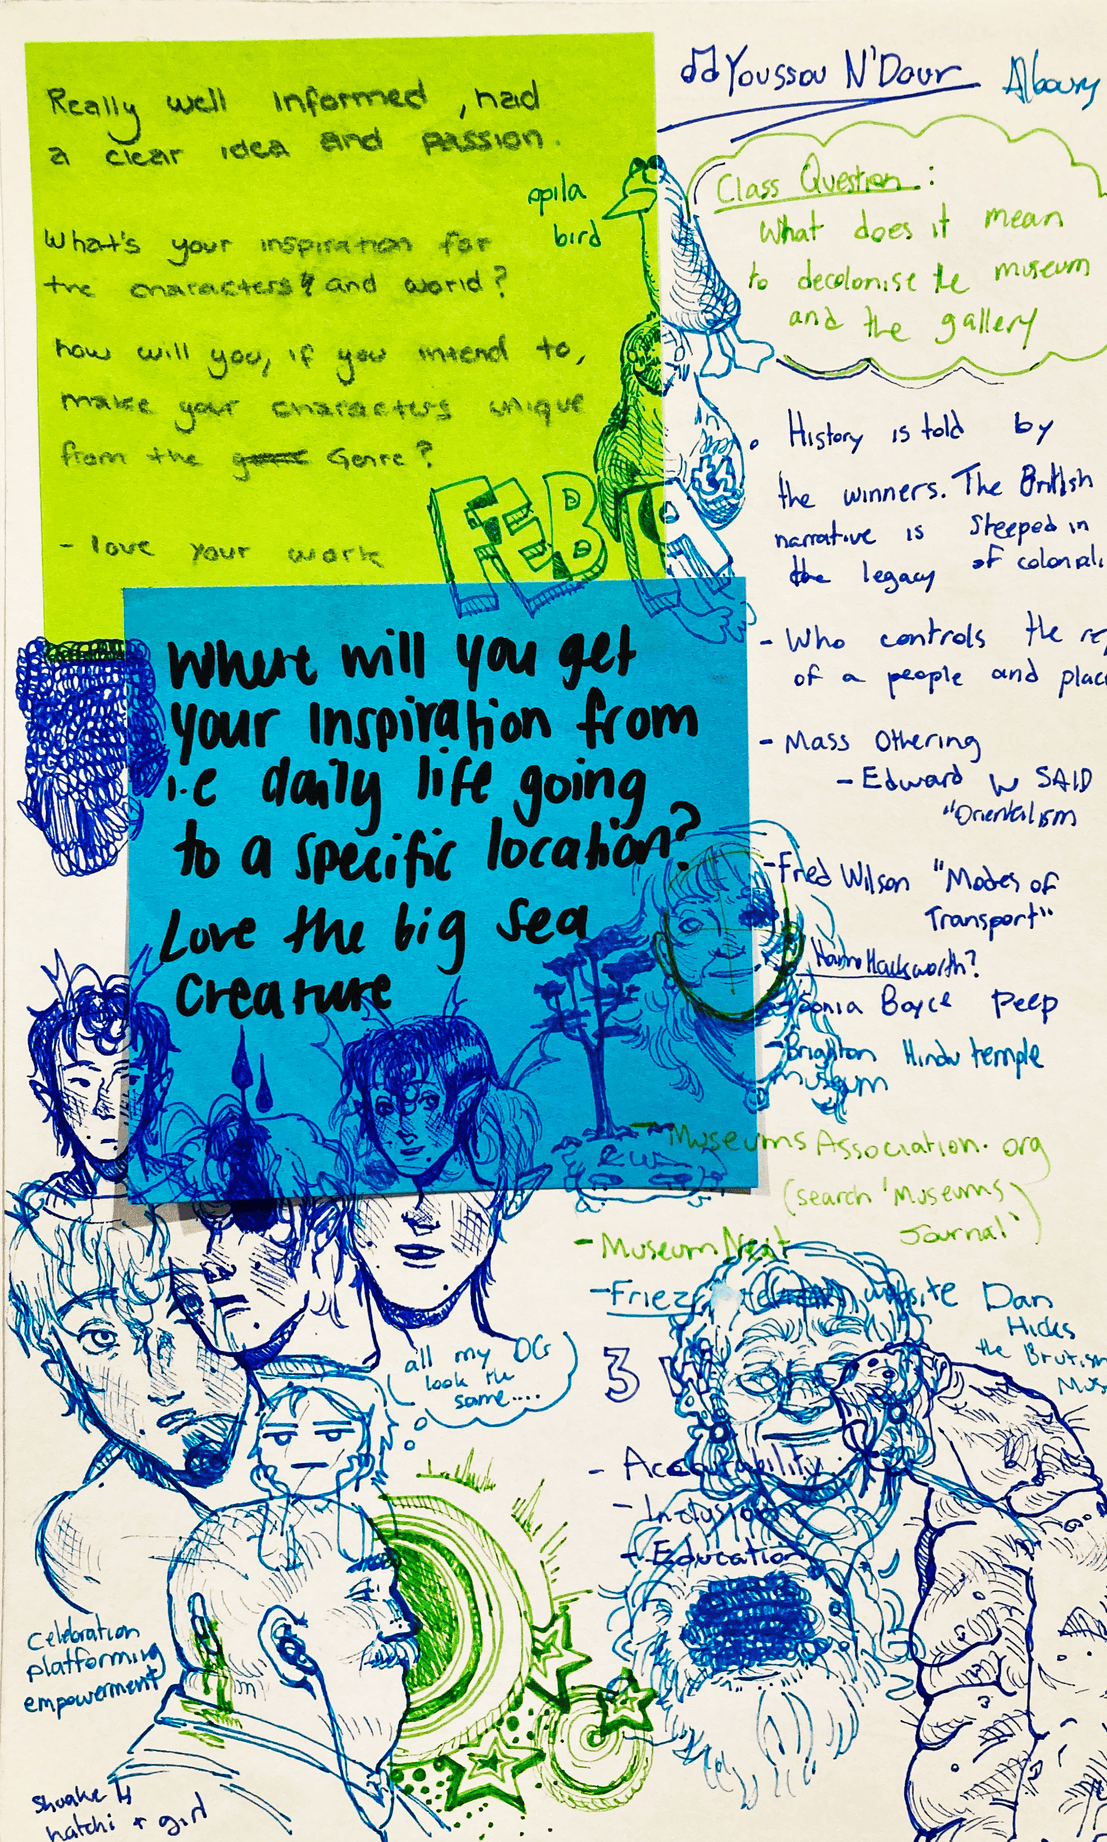 Really well informed, had
a clear idea and passion.
What's your inspiration for
the characters & and world?
how will you, if you intend to,
make your characters unique
from the Genre?
- love your work
opila
bird
FEB
Where will you get
your inspiration from
i.e daily life going
to a specific location?
Love the big sea
creature
Youssou N'Dour Alboury
Class Question:
What does it mean
to decolonise the museum
and the gallery
History is told by
the winners. The British
narrative is steeped in
the legacy of coloniali
- Who controls the rep
of a people and place
- Mass Othering
- Edward W SAID
"Orientalism
- Fred Wilson "Modes of
Transport"
- Sonia Boyce Peep
- Brighton Hindu temple
museum
- Museums Association.org
(search 'Museums
Journal')
- Museum Next
- Frieze website Dan
Hicks
the Brutish
Mus
3
- Accountability
- Inclusion
- Education
all my OCs
look the
same....
Celebration
platforming
empowerment
hatchi + girl